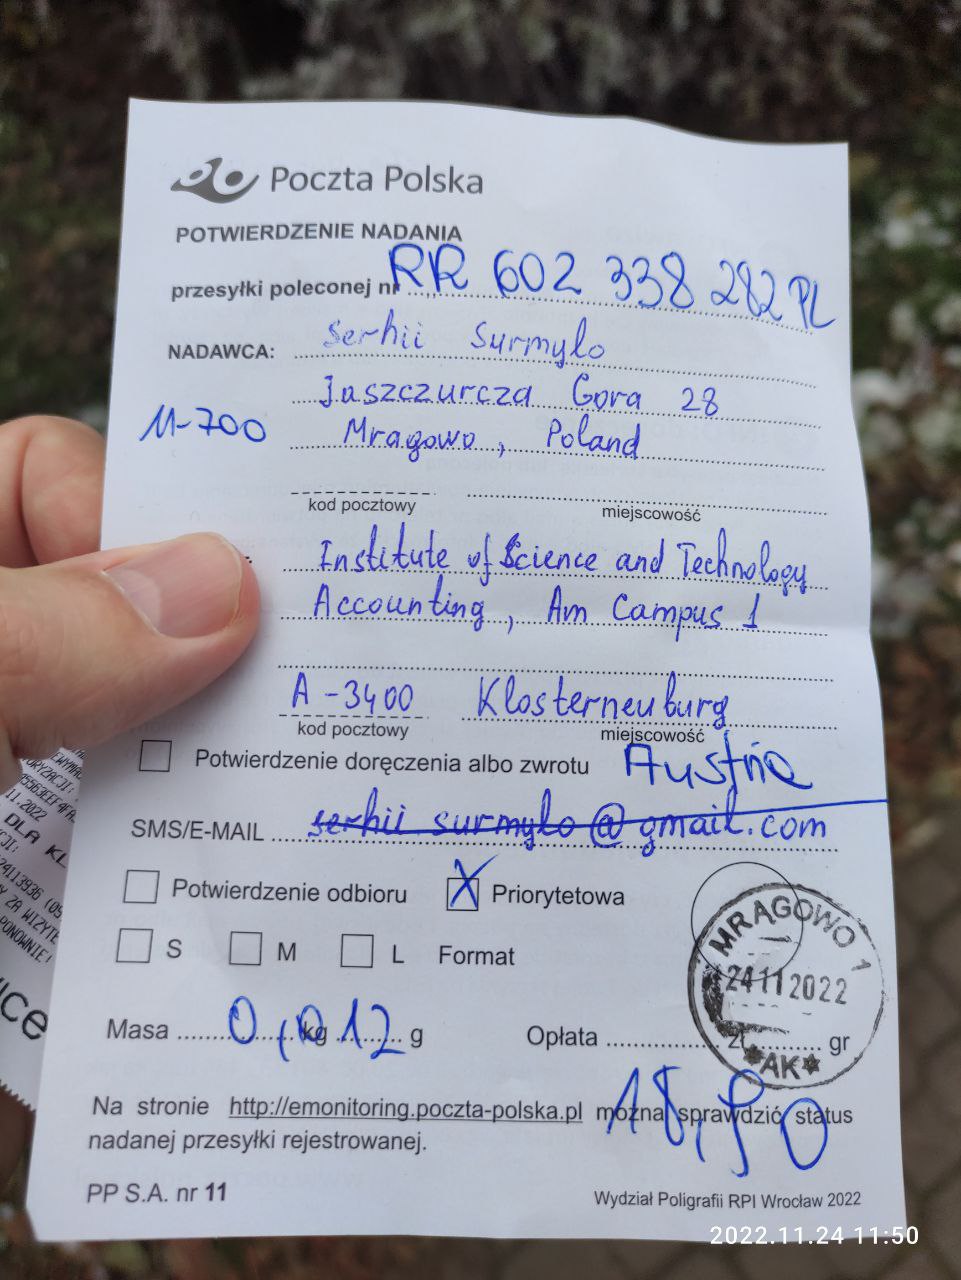 Poczta Polska
POTWIERDZENIE NADANIA
przesyłki poleconej nr RR 602 338 282 PL
NADAWCA: Serhii Surmylo
Jaszczurcza Gora 28
11-700 Mragowo, Poland
kod pocztowy miejscowość
Institute of Science and Technology
Accounting, Am Campus 1
A-3400 Klosterneuburg
kod pocztowy miejscowość
Potwierdzenie doręczenia albo zwrotu Austria
SMS/E-MAIL serhii surmylo@gmail.com
Potwierdzenie odbioru X Priorytetowa
S M L Format
MRĄGOWO 1
24 11 2022
*AK*
Masa 0,012 kg g Opłata zł gr
18,90
Na stronie http://emonitoring.poczta-polska.pl można sprawdzić status
nadanej przesyłki rejestrowanej.
PP S.A. nr 11 Wydział Poligrafii RPI Wrocław 2022
2022.11.24 11:50